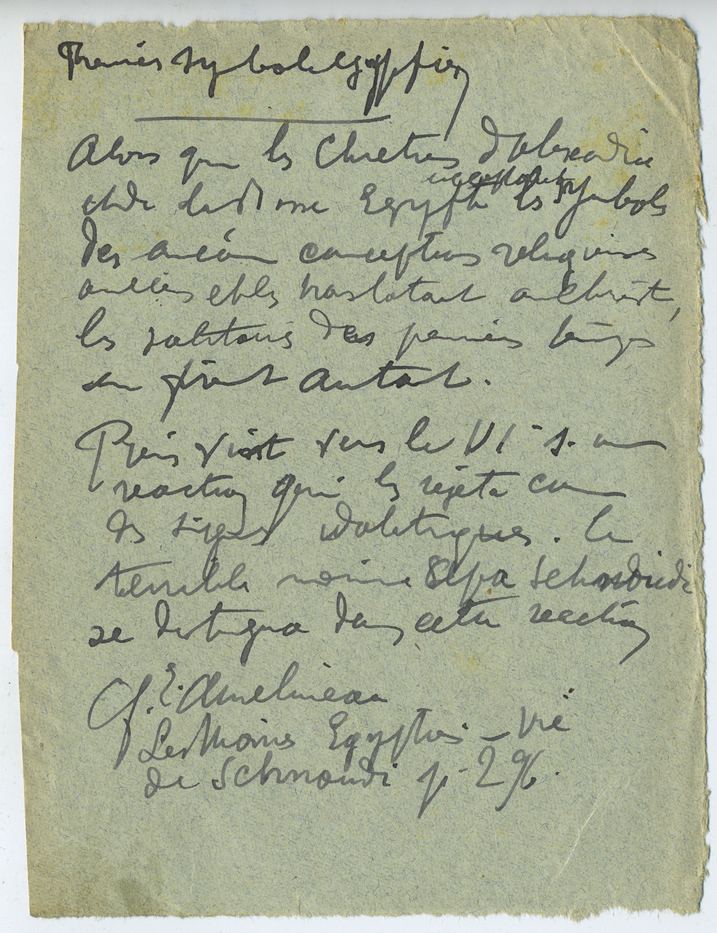 Premiers symboles égyptiens
Alors que les Chrétiens d'Alexandrie
et de la Basse Egypte les symboles
des conceptions religieuses
anciennes et les translatant au Christ,
les des premiers temps
en firent autant.
Puis vint vers le VIe s. une
réaction qui les rejeta comme
des signes idolatriques. Le
terrible moine Apa Schnoudi
se distingua dans cette réaction
Cf. E. Amelineau
Les Moines Egyptiens - Vie
de Schnoudi p. 296.